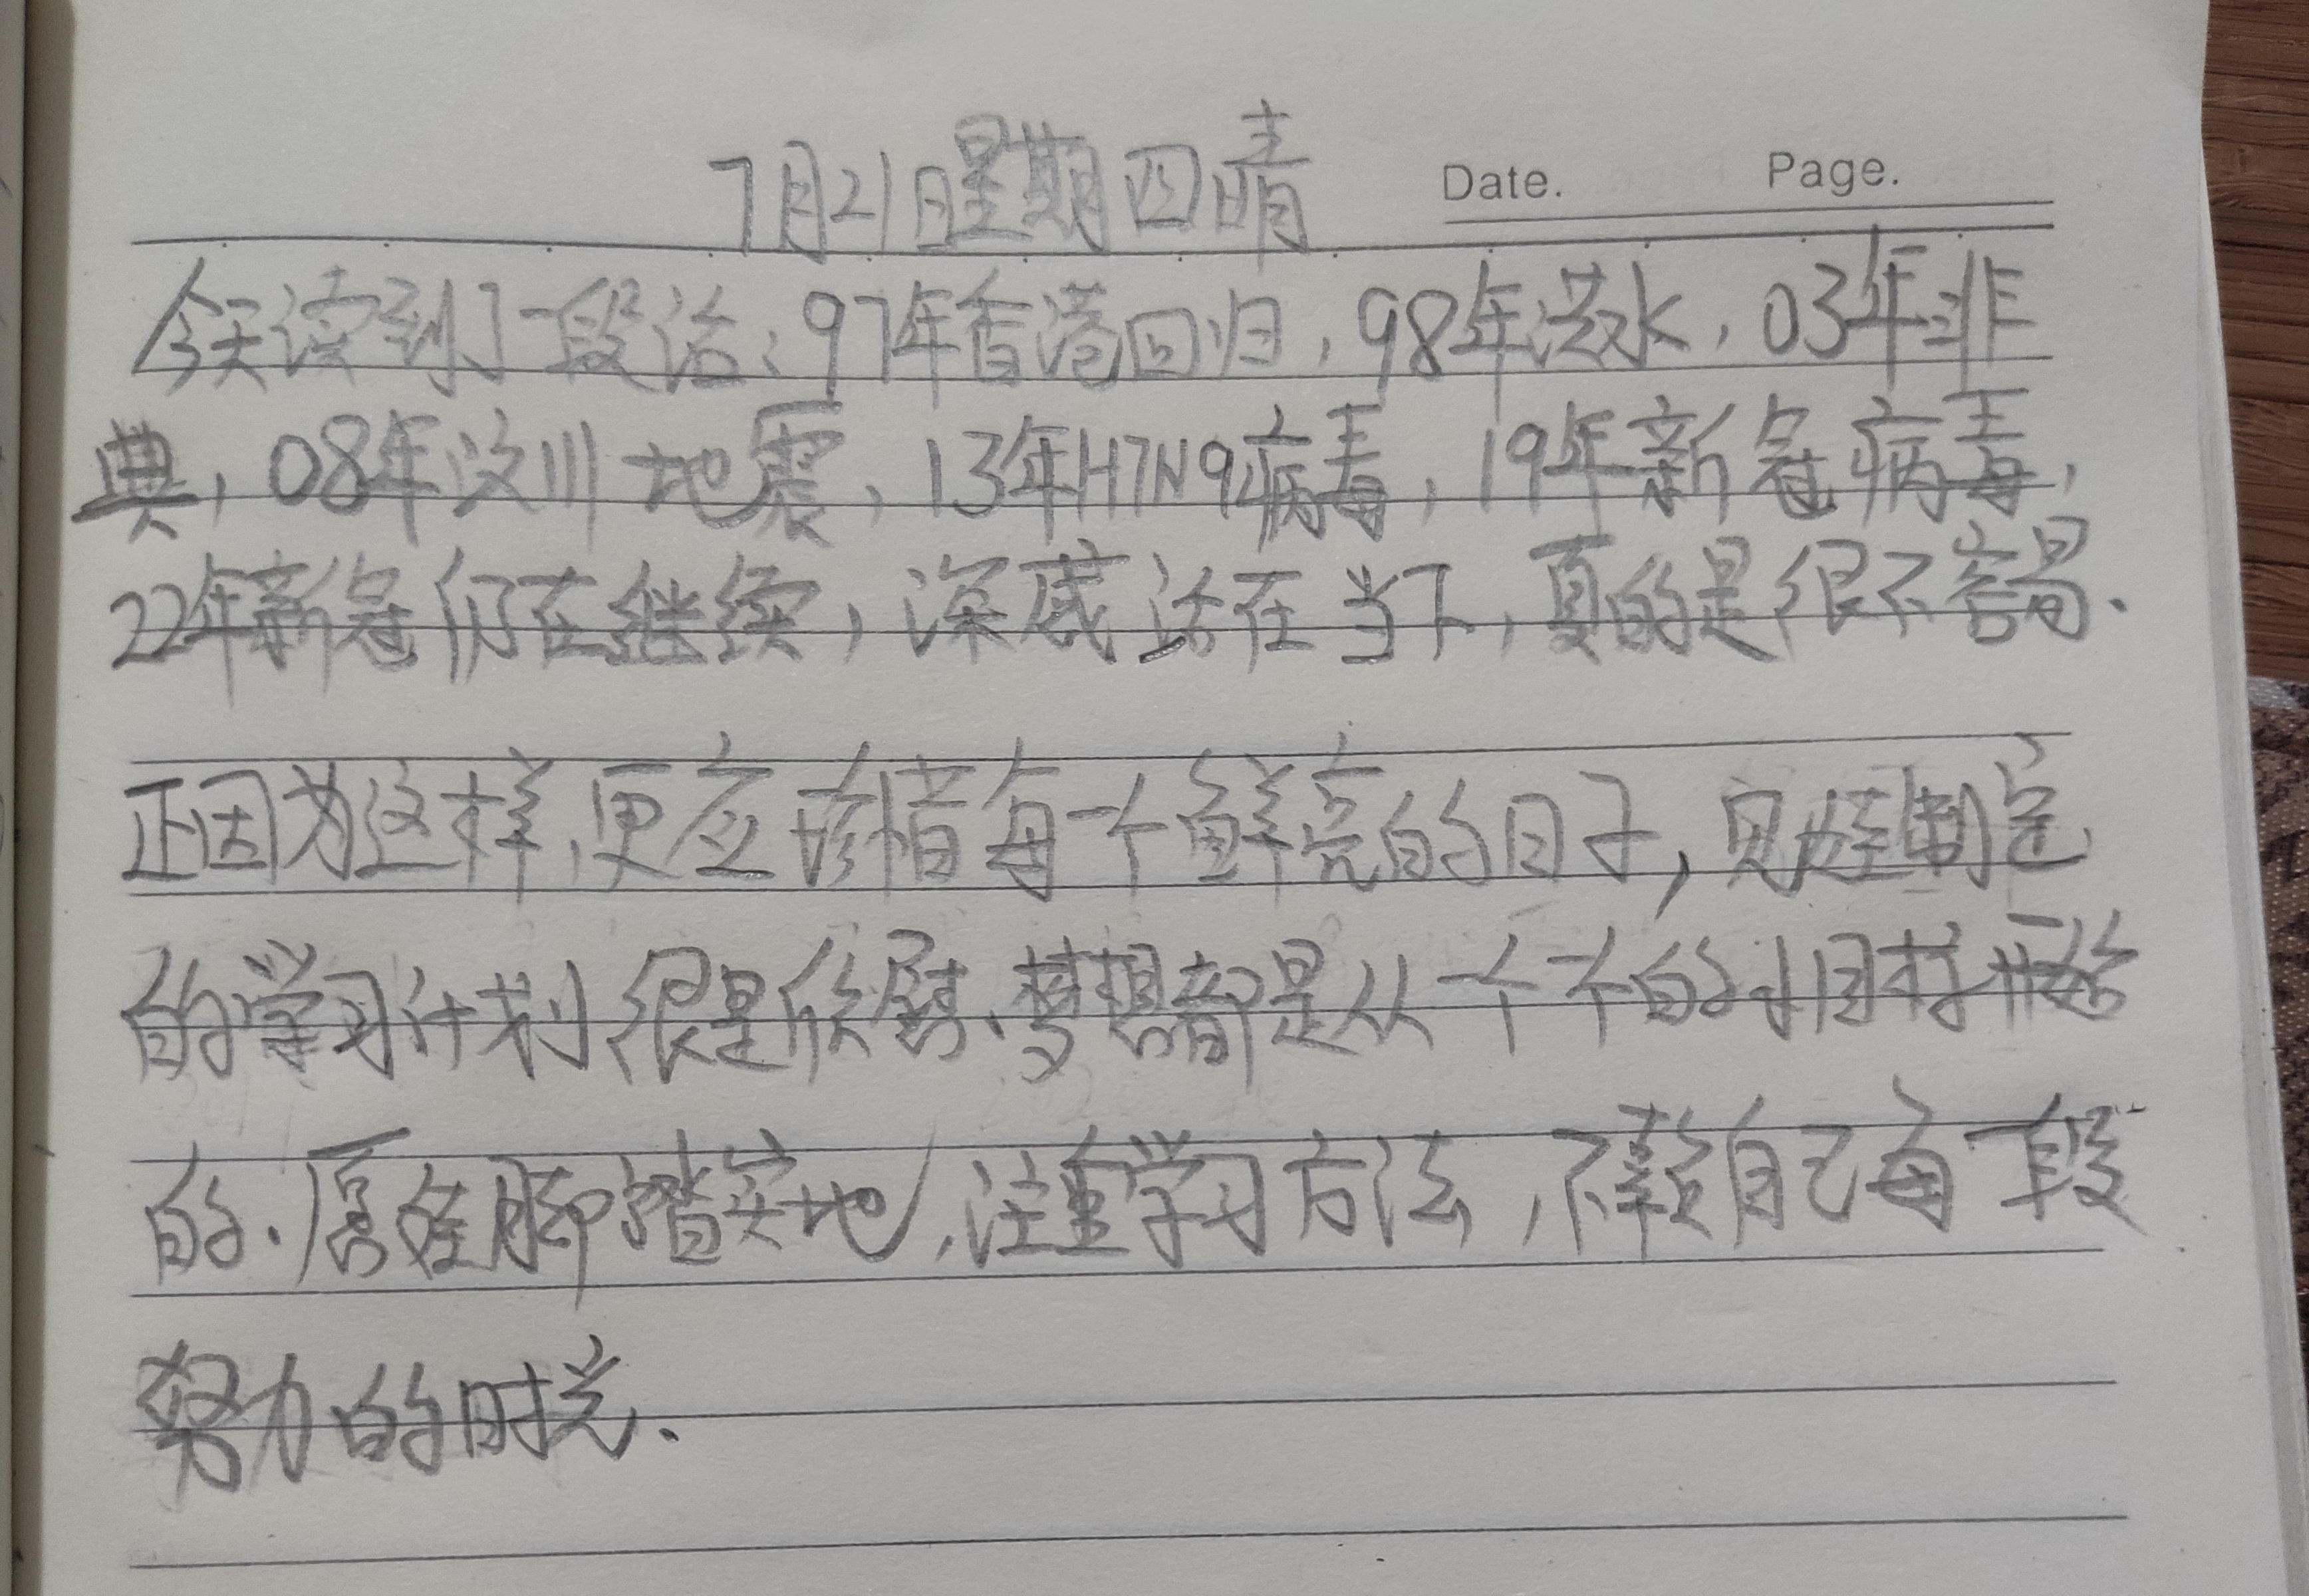 7月21日星期四晴
Date. Page.
今天读到了一段话：97年香港回归，98年洪水，03年非
典，08年汶川地震，13年H7N9病毒，19年新冠病毒，
22年新冠仍在继续，深感活在当下，真的是很不容易.
正因为这样，更应珍惜每一个鲜亮的日子，见娃制定
的学习计划很是欣慰.梦想都是从一个个的小目标开始
的.愿娃脚踏实地，注重学习方法，不辜负自己每一段
努力的时光.